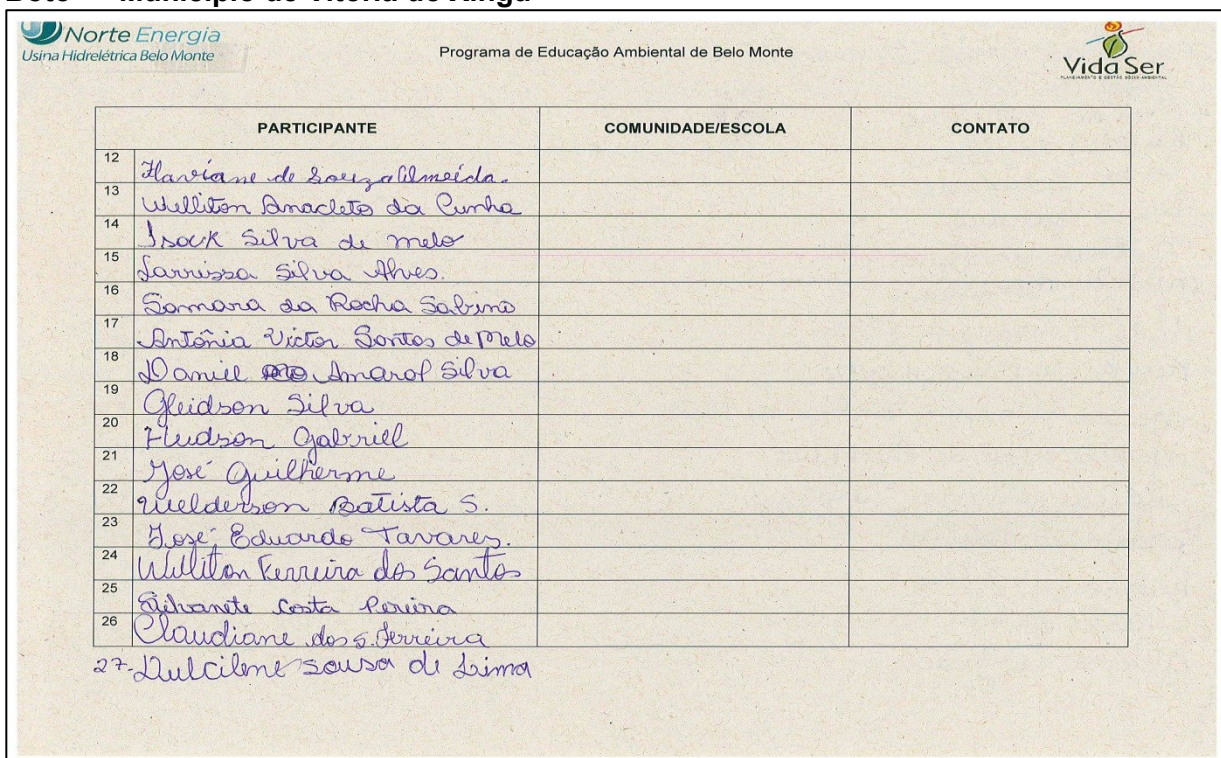 Norte Energia
Usina Hidrelétrica Belo Monte
Programa de Educação Ambiental de Belo Monte
VidaSer
PLANEJAMENTO E GESTÃO SÓCIO-AMBIENTAL
PARTICIPANTE COMUNIDADE/ESCOLA CONTATO
12 Flaviane de Souza Almeida.
13 Welliton Anacleto da Cunha
14 Isack Silva de melo
15 Larrissa Silva Alves.
16 Samara da Rocha Sabino
17 Antônia Victor Santos de Melo
18 Daniel Amaral Silva
19 Gleidson Silva
20 Hudson Gabriell
21 José Guilherme
22 Welderson Batista S.
23 José Eduardo Tavares.
24 Williton Ferreira dos Santos
25 Costa Pereira
26 Claudiane dos S. Ferreira
27- Dulcilene sousa de Lima